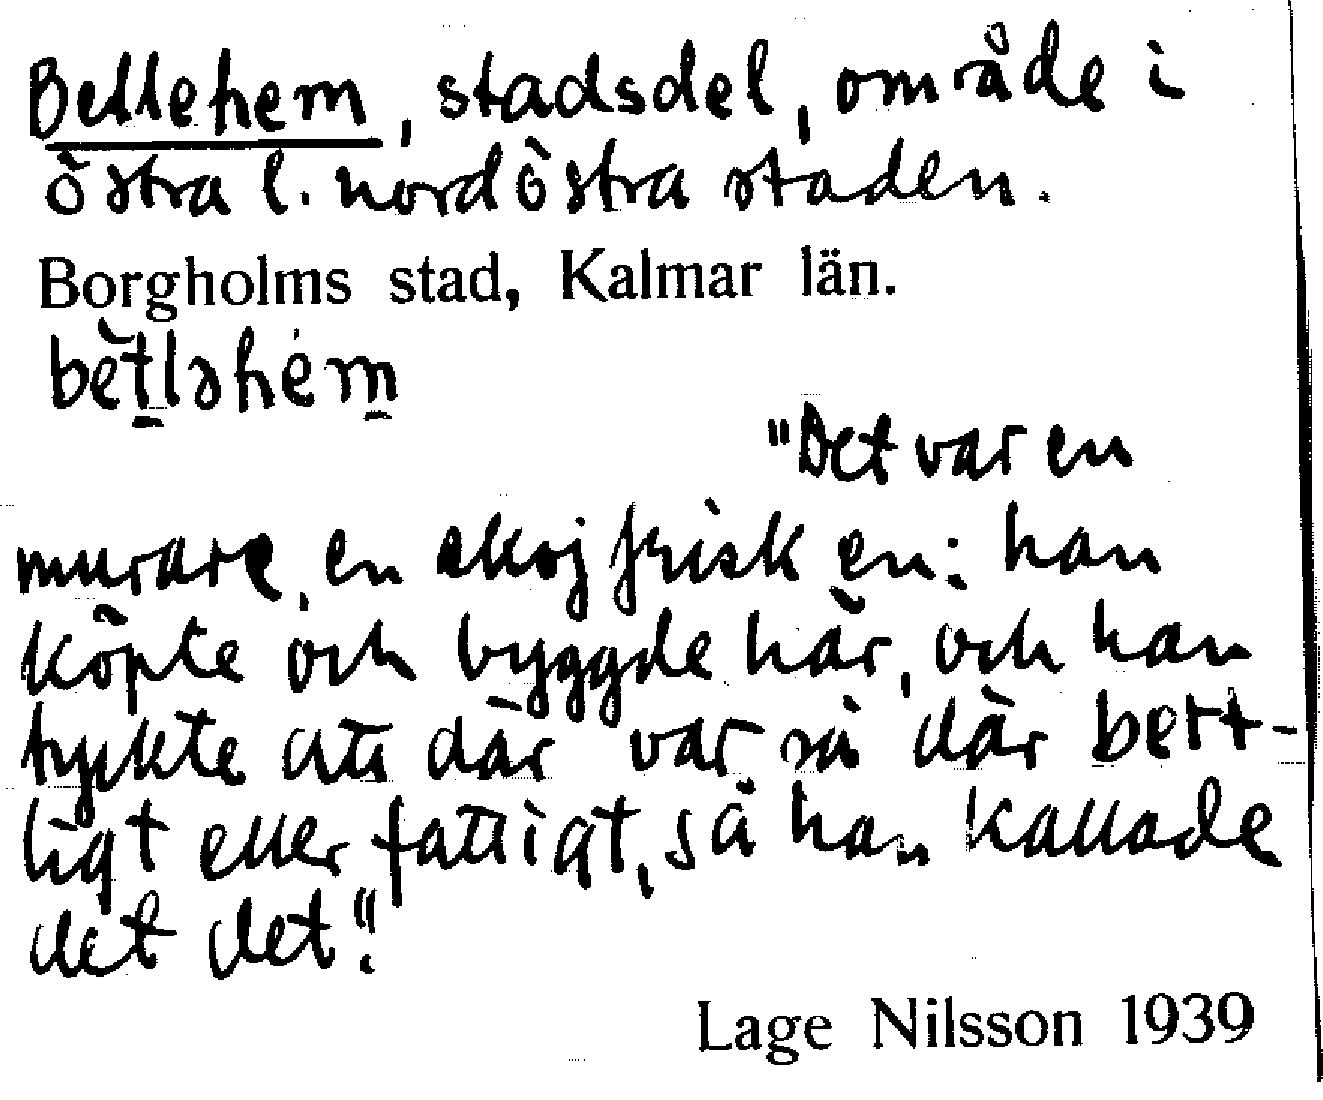 Betlehem, stadsdel, område i
östra l. nordöstra staden.
Borgholms stad, Kalmar län.
bètləhém
"Det var en
murare, en skojfrisk en: han
köpte och byggde här, och han
tyckte att där var så där bett-
ligt eller fattigt, så han kallade
det det".
Lage Nilsson 1939